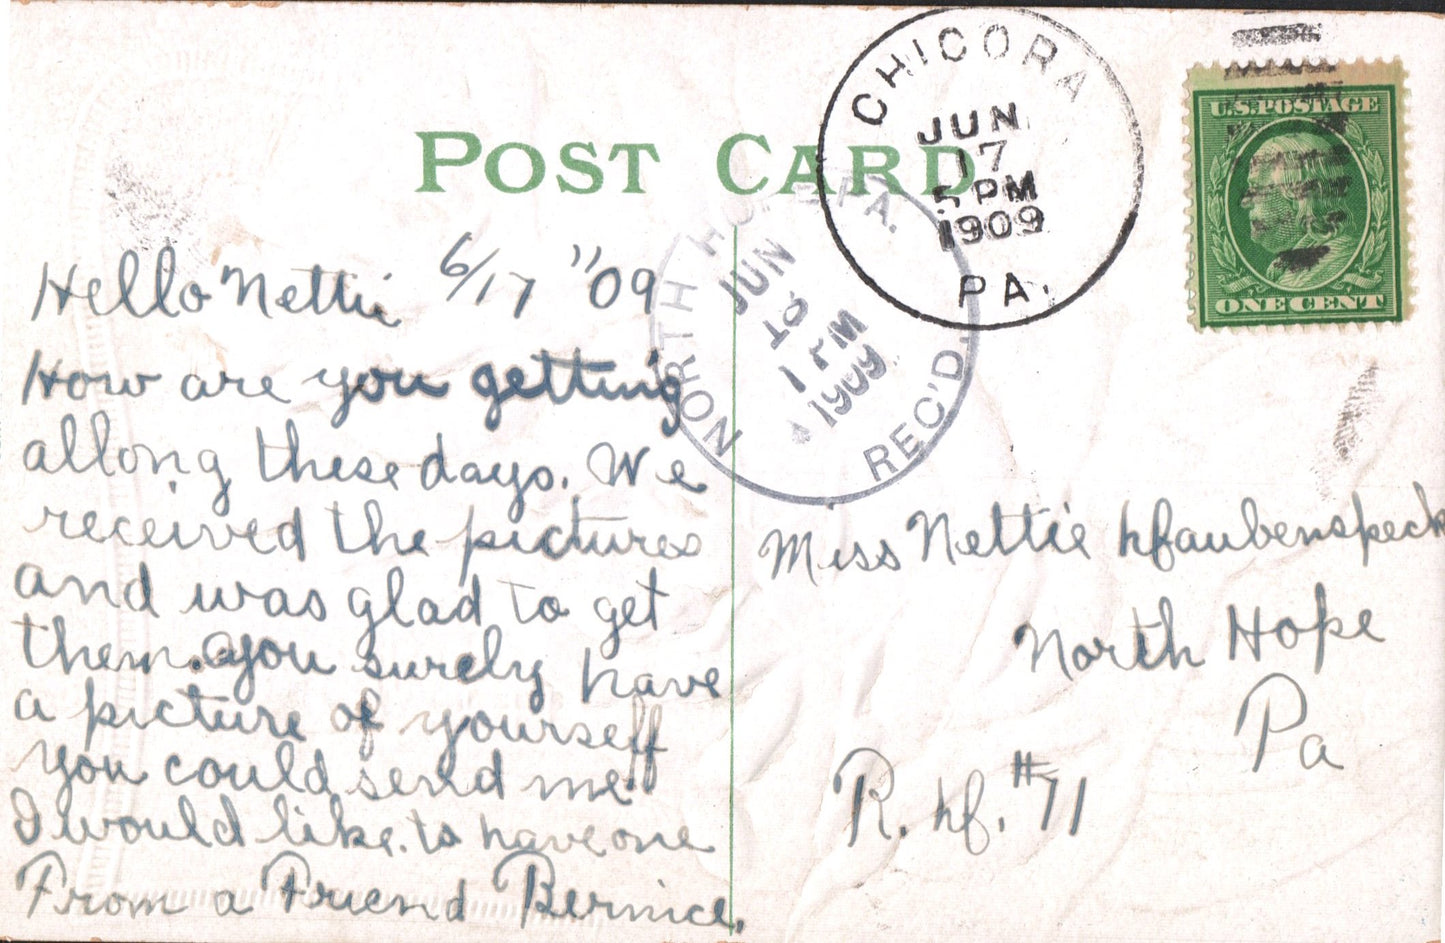 POST CARD
CHICORA
JUN
17
5 PM
1909
PA.
U.S. POSTAGE
ONE CENT
NORTH HOPE, PA.
JUN
18
1 PM
1909
REC'D.
Hello Nettie 6/17 "09
How are you getting
allong these days. We
received the pictures
and was glad to get
them. you surely have
a picture of yourself
you could send me
I would like to have one
From a Friend Bernice.
Miss Nettie Hfaubenspeck
North Hope
Pa
R. hf. #71